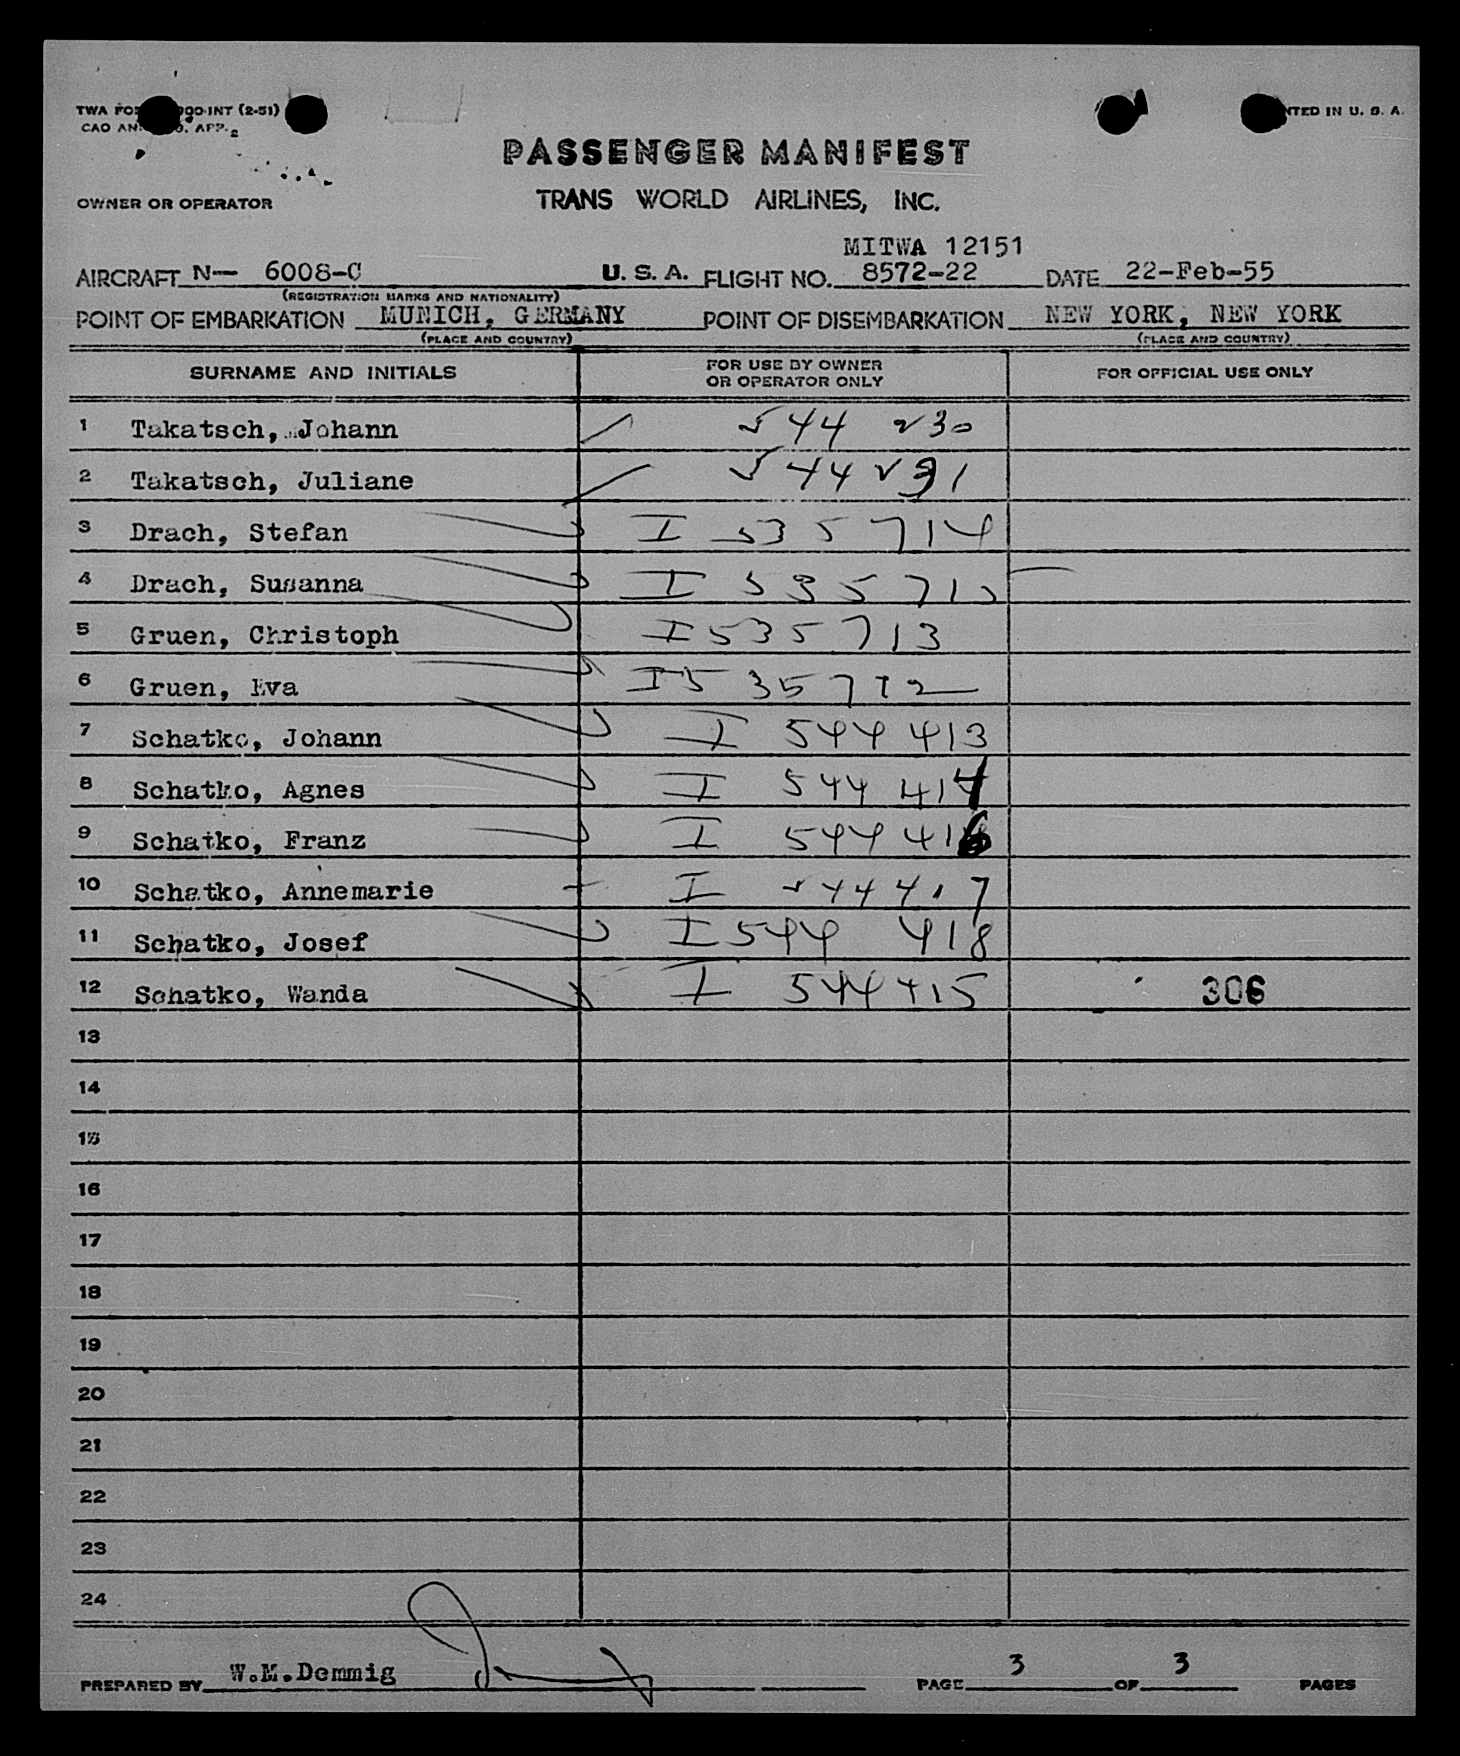 TWA FO 00-INT (2-51)
NTED IN U. S. A.
CAO AN . APP. 2
PASSENGER MANIFEST
OWNER OR OPERATOR
TRANS WORLD AIRLINES, INC.
MITWA 12151
AIRCRAFT N— 6008-C U. S. A. FLIGHT NO. 8572-22 DATE 22-Feb-55
(REGISTRATION MARKS AND NATIONALITY)
POINT OF EMBARKATION MUNICH, GERMANY POINT OF DISEMBARKATION NEW YORK, NEW YORK
(PLACE AND COUNTRY) (PLACE AND COUNTRY)
SURNAME AND INITIALS FOR USE BY OWNER OR OPERATOR ONLY FOR OFFICIAL USE ONLY
1 Takatsch, Johann 544 230
2 Takatsch, Juliane 544
3 Drach, Stefan I 535 714
4 Drach, Susanna I 535 715
5 Gruen, Christoph I 535 713
6 Gruen, Eva I 535 712
7 Schatko, Johann I 544 413
8 Schatko, Agnes I 544 414
9 Schatko, Franz I 544 416
10 Schatko, Annemarie I 544 417
11 Schatko, Josef I 544 418
12 Schatko, Wanda I 544415 306
13
14
15
16
17
18
19
20
21
22
23
24
PREPARED BY W.M.Demmig PAGE 3 OF 3 PAGES